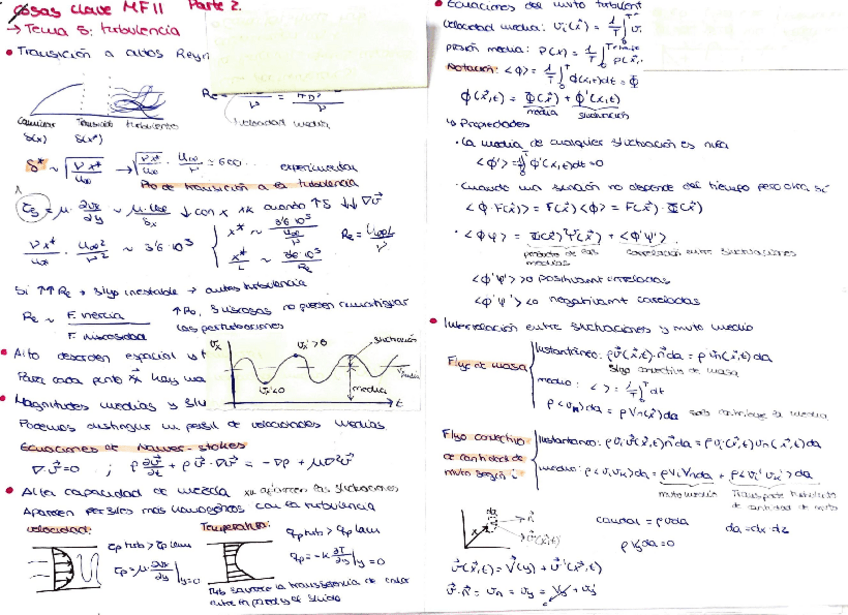 Cosas clave MF II Parte 2.
→ Tema 5: turbulencia
• Transición a altos Reyn
Re = = 
velocidad media
laminar Transición turbulento
δ(x) δ(x*)
δ* ~ √(ν x*/u∞) → √(ν x*/u∞) · u∞/ν ≈ 600 experimentar
Pto de transición a la turbulencia
= μ · ∂vx/∂y ~ μ·u∞/δx ↓ con x cuando ↑δ ↓↓ ∇v⃗
ν x*/u∞ · u∞²/ν² ~ 3'6·10⁵
x* ~ 3'6·10⁵/(u∞/ν)
x*/L ~ 3'6·10⁵/Re
Re = u∞L/ν
Si ↑↑Re → flujo inestable → autos turbulencia
Re ~ F. inercia / F. viscosidad
↑Re, F. viscosas no pueden
las perturbaciones
• Alto desorden espacial y t
Para cada punto x⃗ hay una
• Magnitudes medias y flu
vx v'x>0 fluctuación
v'x<0 media t
Podemos distinguir un perfil de velocidades medias
Ecuaciones de Navier-Stokes
∇·v⃗=0 ; ρ ∂v⃗/∂t + ρ v⃗·∇v⃗ = −∇p + μ∇²v⃗
• Alta capacidad de mezcla xq aparecen las fluctuaciones
Aparecen perfiles más homogéneos con la turbulencia
velocidad: Temperatura:
τp turb > τp lam
τp = μ·∂vx/∂y |y=0
qp turb > qp lam
qp = −k ∂T/∂y |y=0
Turb favorece la transferencia de calor
entre pared y el fluido
• Ecuaciones del mvto turbulent
velocidad media: vi(x⃗) = 1/T ∫ vi
presión media: P(x) = 1/T ∫ p(x⃗,
Notación: <ϕ> = 1/T ∫₀ᵀ ϕ(x,t)dt = Φ
ϕ(x⃗,t) = Φ(x⃗) + ϕ'(x,t)
media fluctuación
↳ Propiedades
· La media de cualquier fluctuación es nula
<ϕ'> = 1/T ∫₀ᵀ ϕ'(x,t)dt = 0
· Cuando una función no depende del tiempo pero otra sí
<ϕ·F(x⃗)> = F(x⃗)<ϕ> = F(x⃗)·Φ(x⃗)
· <ϕψ> = Φ(x⃗)Ψ(x⃗) + <ϕ'ψ'>
producto de las medias correlación entre fluctuaciones
<ϕ'ψ'> >0 positivamt correladas
<ϕ'ψ'> <0 negativamt correladas
• Interrelación entre fluctuaciones y mvto medio
Flujo de masa
Instantáneo: ρv⃗(x⃗,t)·n⃗da = ρ vn(x⃗,t)da
flujo convectivo de masa
medio: < > = 1/T ∫₀ᵀ dt
ρ<vn>da = ρVn(x⃗)da solo contribuye la media
Flujo convectivo
de cantidad de
mvto según i
Instantáneo: ρvi v⃗(x⃗,t)n⃗da = ρvi(x⃗,t)vn(x⃗,t)da
medio: ρ<vivn>da = ρViVnda + ρ<vi'vn'>da
mvto medio Transporte turbulento
de cantidad de mvto
da n⃗
x⃗ v⃗(x⃗,t)
caudal = ρvda da = dx·dz
ρVyda=0
v⃗(x⃗,t) = V⃗(y) + v⃗'(x⃗,t)
v⃗·n⃗ = vn = vy = Vy + vy'